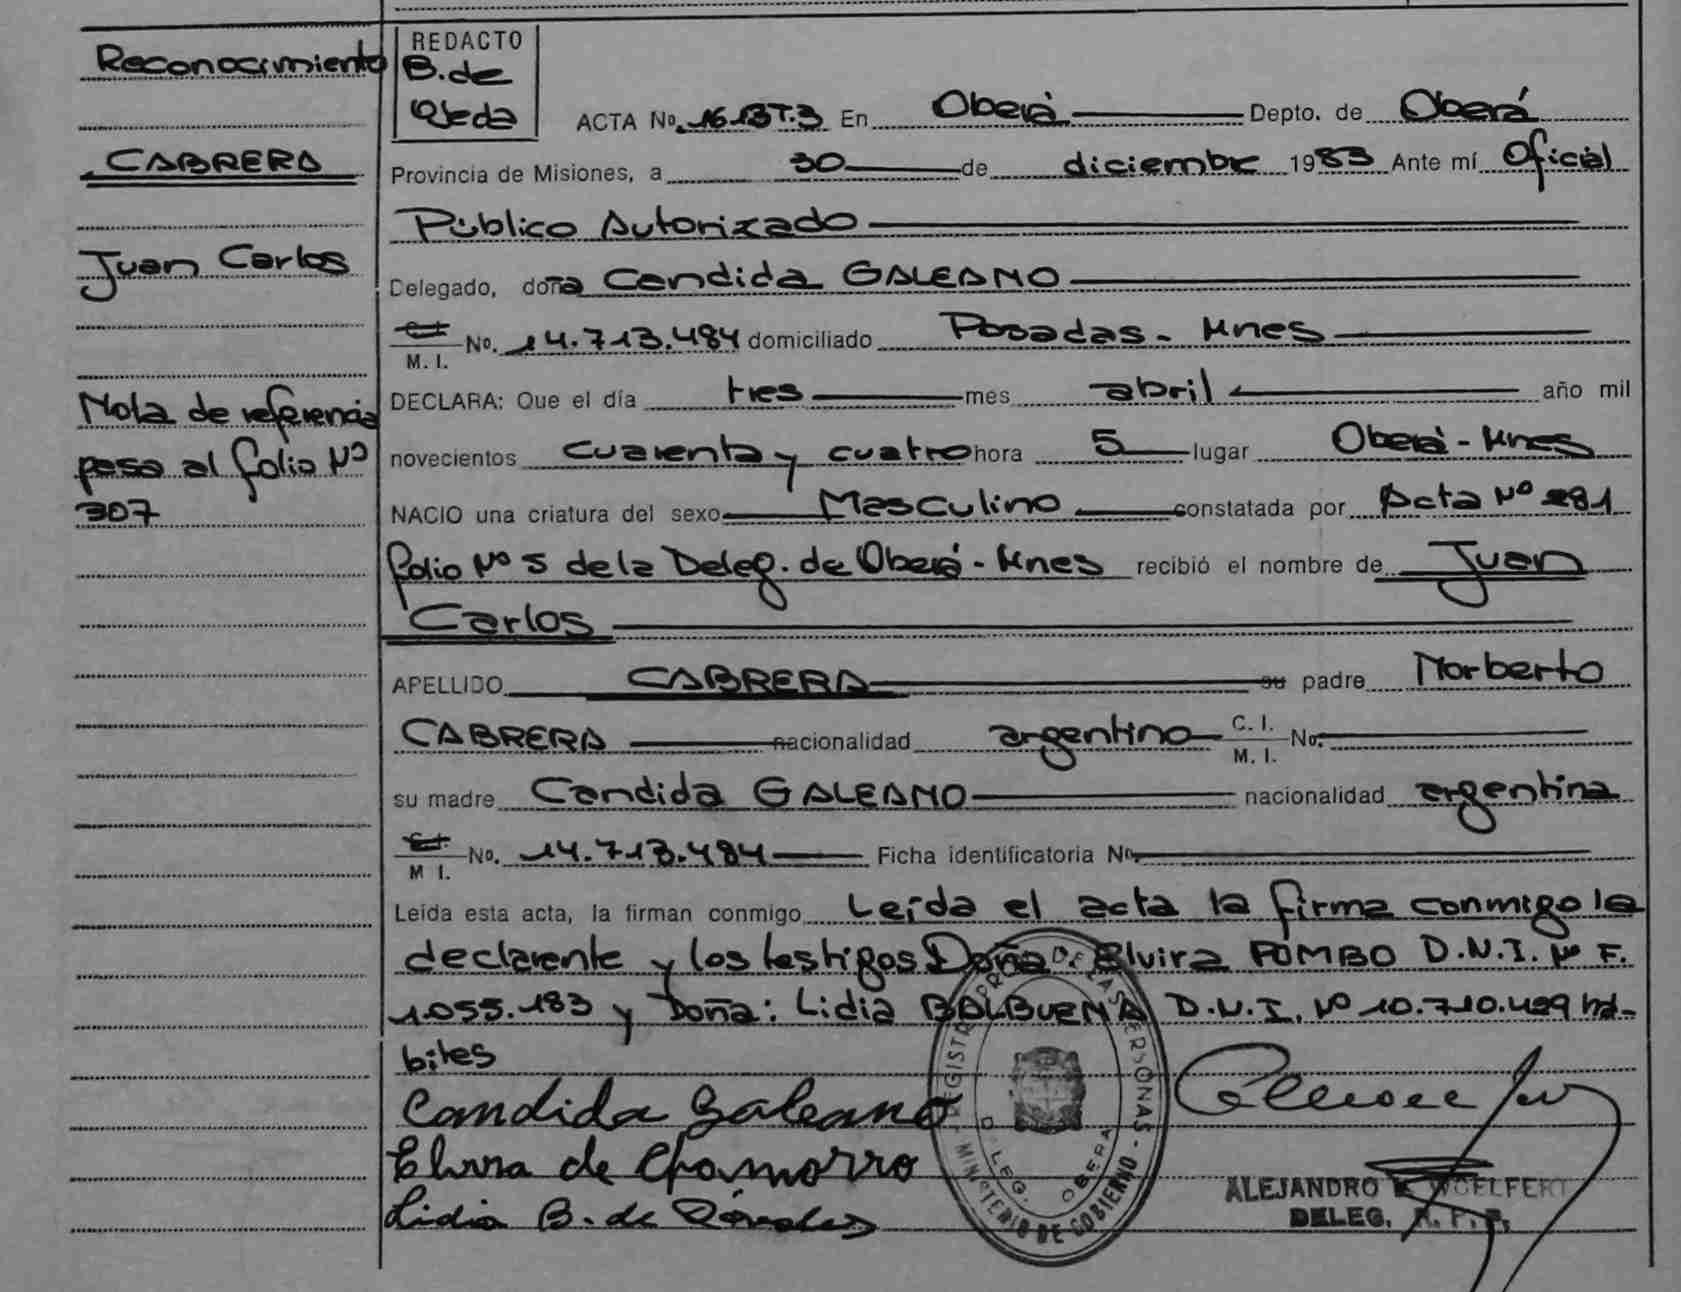 Reconocimiento
CABRERA
Juan Carlos
Nota de referencia
pasa al folio Nº
307
REDACTO
B. de
Ojeda
ACTA No. 1613T.3 En Oberá Depto. de Oberá
Provincia de Misiones, a 30 de diciembre 1983 Ante mí Oficial
Público Autorizado
Delegado, doña Candida GALEANO
C.I. M. I. No. 14.713.484 domiciliado Posadas - Mnes
DECLARA: Que el día tres mes abril año mil
novecientos cuarenta y cuatro hora 5 lugar Oberá - Mnes
NACIO una criatura del sexo Masculino constatada por Acta Nº 281
folio Nº 5 de la Deleg. de Oberá - Mnes recibió el nombre de Juan
Carlos
APELLIDO CABRERA su padre Norberto
CABRERA nacionalidad argentino C. I. M. I. No.
su madre Candida GALEANO nacionalidad argentina
C.I. M I. No. 14.713.484 Ficha identificatoria No.
Leída esta acta, la firman conmigo Leída el acta la firma conmigo la
declarente y los testigos Doña Elvira POMBO D.N.I. Nº F.
1.055.183 y Doña: Lidia BALBUENA D.N.I. Nº 10.710.499 há-
biles
Candida Galeano
Elvira de Chamorro
Lidia B. de
REGISTRO PROV. DE LAS PERSONAS - MINISTERIO DE GOBIERNO
DELEG. OBERA
ALEJANDRO WOELFERT
DELEG. R. P. P.